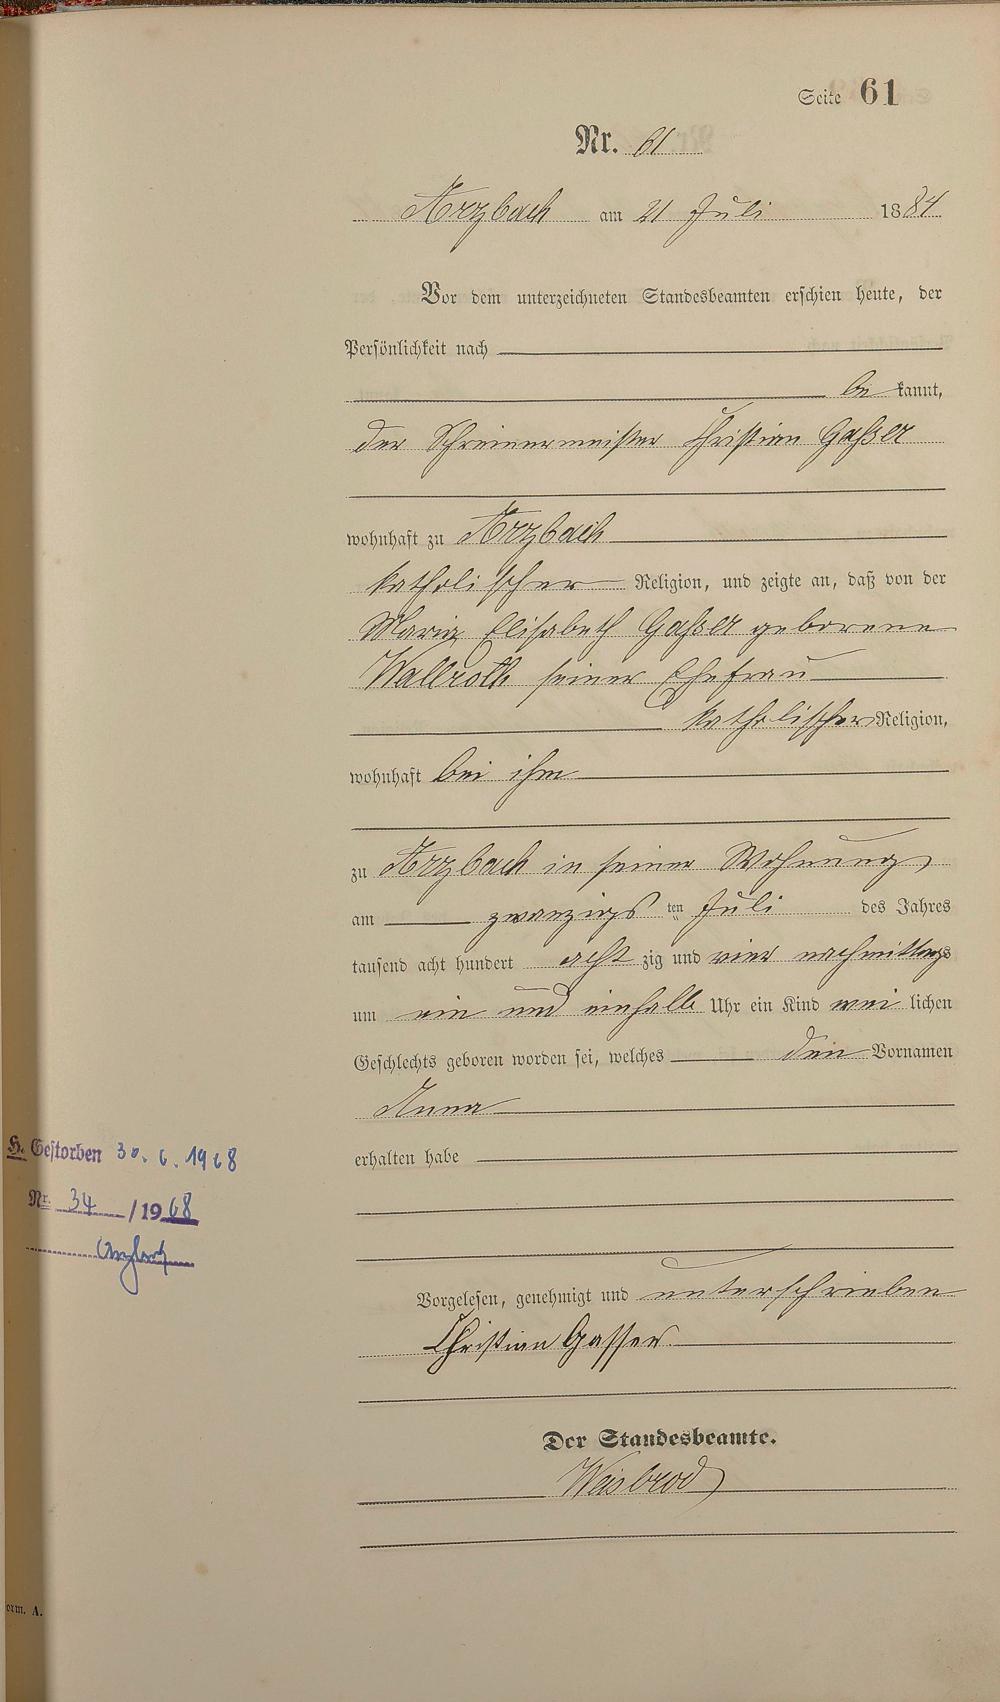 Seite 61
Nr. 61
Arzbach am 21 Juli 1884
Vor dem unterzeichneten Standesbeamten erschien heute, der
Persönlichkeit nach
be kannt,
der Schreinermeister Christian Gaßer
wohnhaft zu Arzbach
katholischer Religion, und zeigte an, daß von der
Maria Elisabeth Gaßer geborene
Wallroth seiner Ehefrau
katholischer Religion,
wohnhaft bei ihm
zu Arzbach in seiner Wohnung
am zwanzigs ten Juli des Jahres
tausend acht hundert acht zig und vier nachmittags
um ein und einhalb Uhr ein Kind wei lichen
Geschlechts geboren worden sei, welches den Vornamen
Anna
erhalten habe
H. Gestorben 30.6.1968
Nr. 34 /1968
Arzbach
Vorgelesen, genehmigt und unterschrieben
Christian Gasser
Der Standesbeamte.
Weisbrod
orm. A.